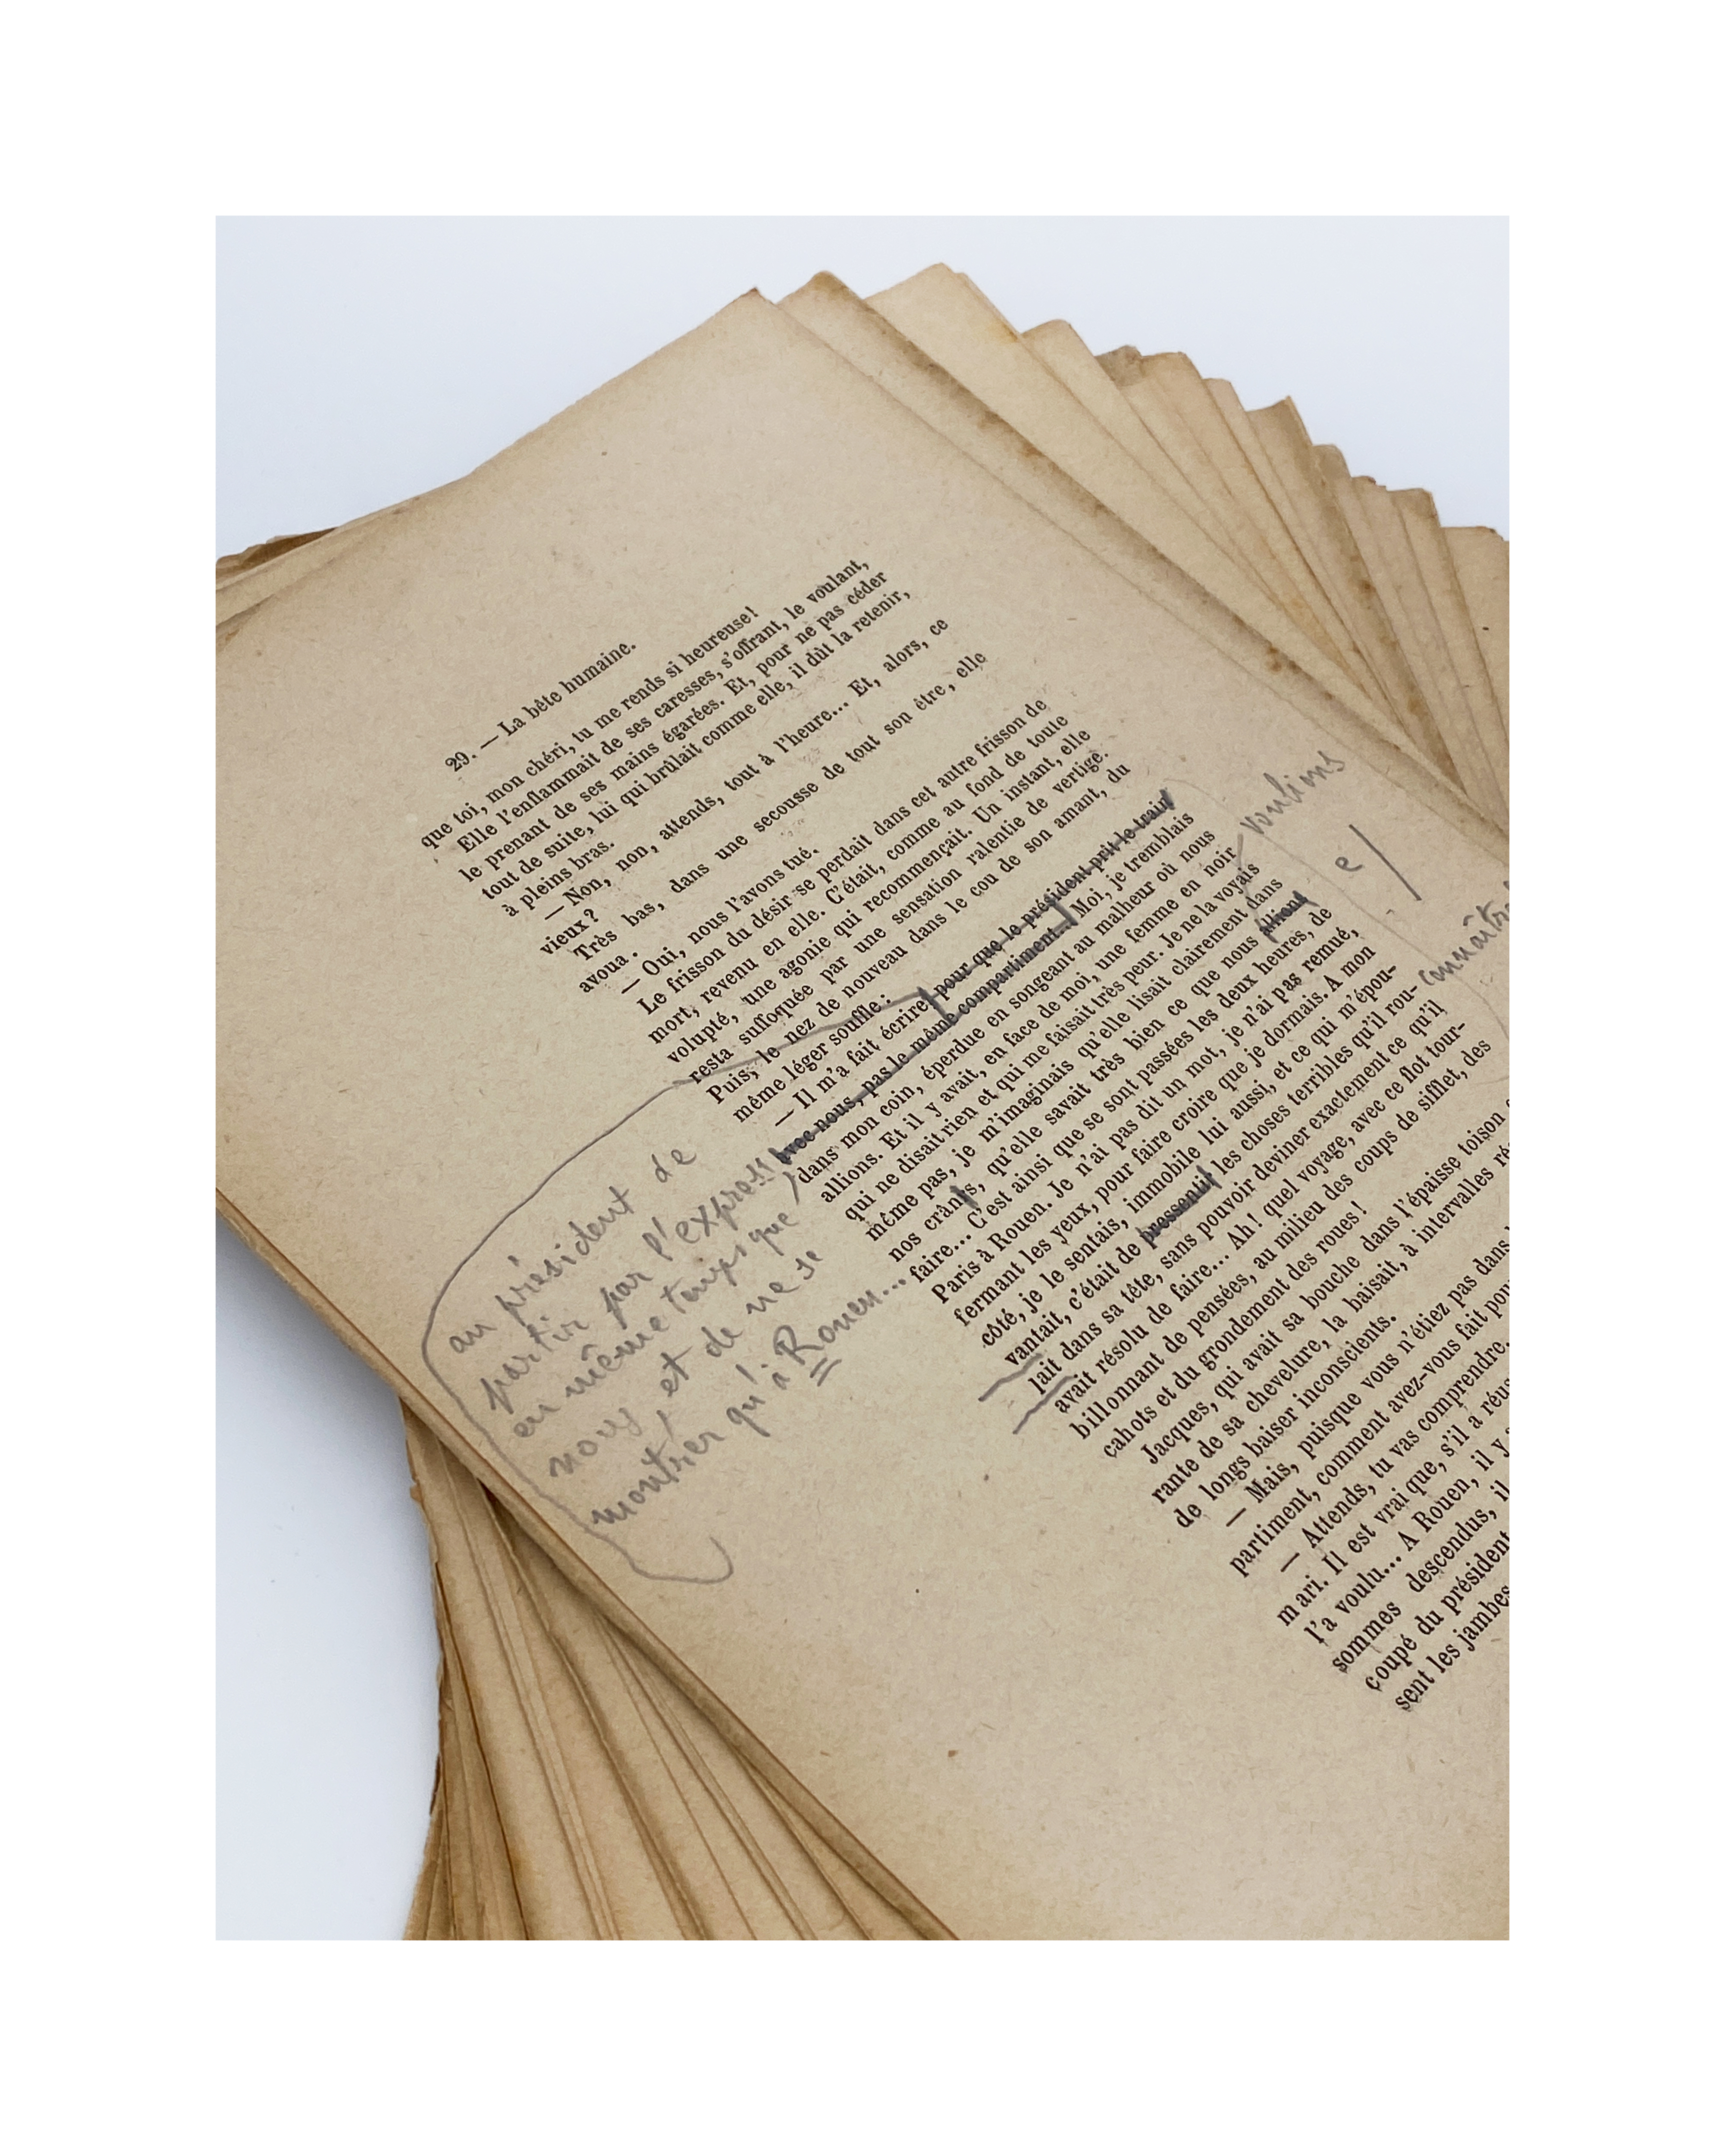 29. — La bête humaine.
que toi, mon chéri, tu me rends si heureuse!
Elle l'enflammait de ses caresses, s'offrant, le voulant,
le prenant de ses mains égarées. Et, pour ne pas céder
tout de suite, lui qui brûlait comme elle, il dût la retenir,
à pleins bras.
— Non, non, attends, tout à l'heure... Et, alors, ce
vieux?
Très bas, dans une secousse de tout son être, elle
avoua.
— Oui, nous l'avons tué.
Le frisson du désir se perdait dans cet autre frisson de
mort, revenu en elle. C'était, comme au fond de toute
volupté, une agonie qui recommençait. Un instant, elle
resta suffoquée par une sensation ralentie de vertige.
Puis, le nez de nouveau dans le cou de son amant, du
même léger souffle:
— Il m'a fait écrire, pour que le président prît le train
avec nous, pas le même compartiment... Moi, je tremblais
dans mon coin, éperdue en songeant au malheur où nous
allions. Et il y avait, en face de moi, une femme en noir
qui ne disait rien et qui me faisait très peur. Je ne la voyais
même pas, je m'imaginais qu'elle lisait clairement dans
nos crânes, qu'elle savait très bien ce que nous allions
faire... C'est ainsi que se sont passées les deux heures, de
Paris à Rouen. Je n'ai pas dit un mot, je n'ai pas remué,
fermant les yeux, pour faire croire que je dormais. A mon
côté, je le sentais, immobile lui aussi, et ce qui m'épou-
vantait, c'était de pressentir les choses terribles qu'il rou-
lait dans sa tête, sans pouvoir deviner exactement ce qu'il
avait résolu de faire... Ah! quel voyage, avec ce flot tour-
billonnant de pensées, au milieu des coups de sifflet, des
cahots et du grondement des roues!
Jacques, qui avait sa bouche dans l'épaisse toison
rante de sa chevelure, la baisait, à intervalles
de longs baiser inconscients.
— Mais, puisque vous n'étiez pas dans
partiment, comment avez-vous fait
— Attends, tu vas comprendre.
mari. Il est vrai que, s'il a
l'a voulu... A Rouen, il y
sommes descendus, il
coupé du président
sent les jambes
au président de
partir par l'express
en même temps que
nous et de ne se
montrer qu'à Rouen...
voulions
e
connaître